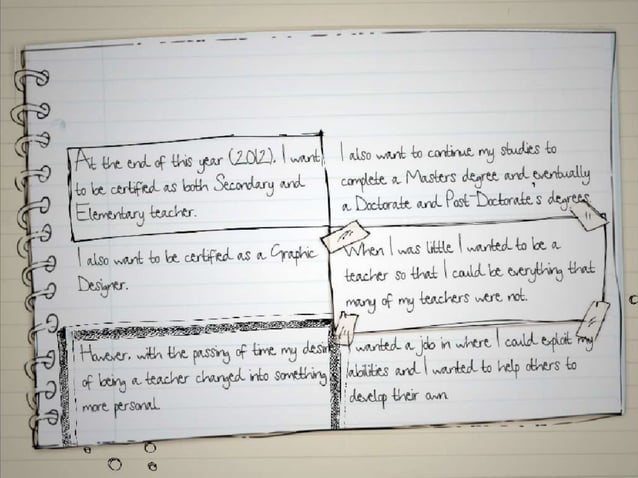 At the end of this year (2012), I want
to be certified as both Secondary and
Elementary teacher.
I also want to continue my studies to
complete a Masters degree and eventually
a Doctorate and Post-Doctorate's degrees.
I also want to be certified as a Graphic
Designer.
When I was little I wanted to be a
teacher so that I could be everything that
many of my teachers were not.
However, with the passing of time my desire
of being a teacher changed into something
more personal.
I wanted a job in where I could exploit my
abilities and I wanted to help others to
develop their own.